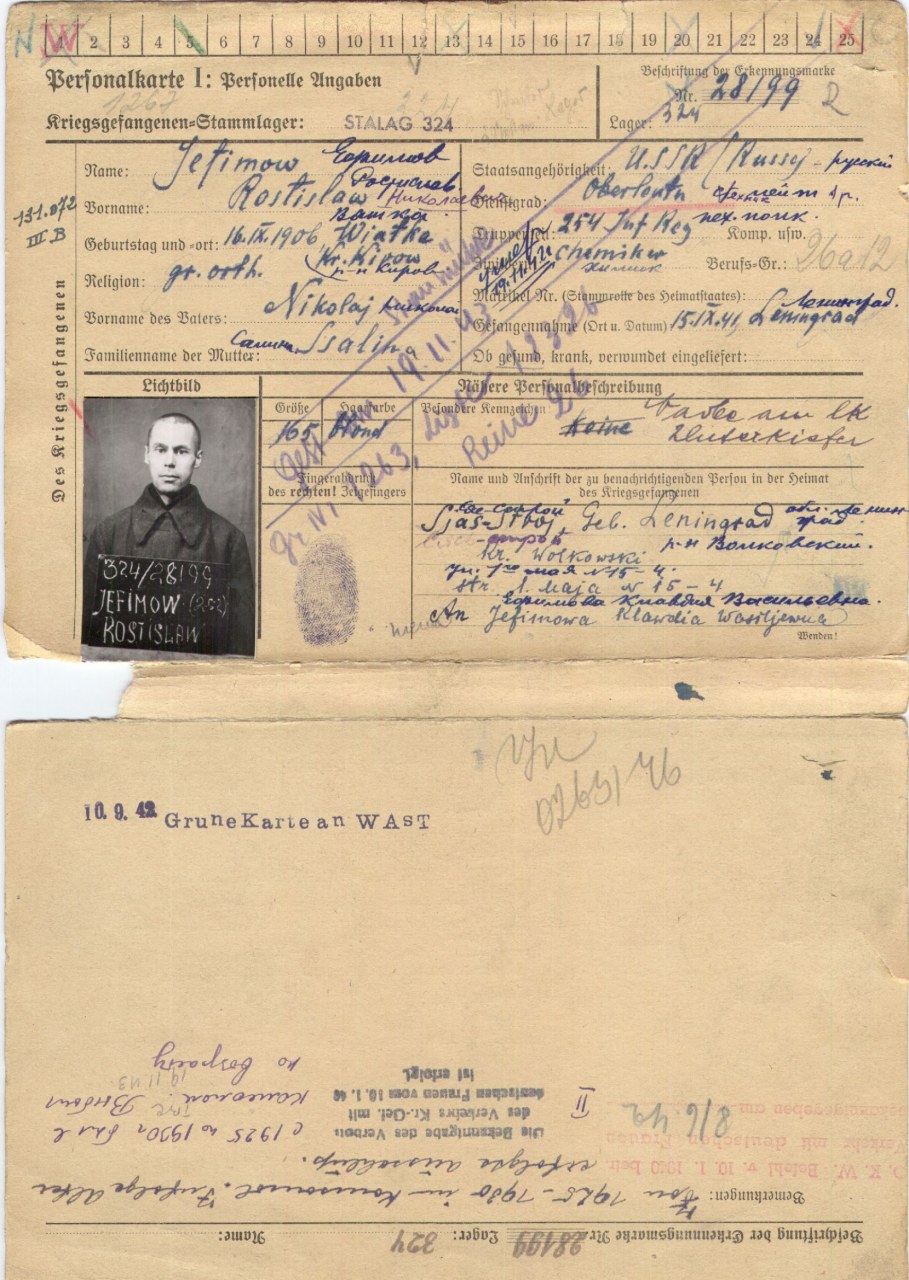 N W 1 2 3 4 5 6 7 8 9 10 11 12 13 14 15 16 17 18 19 20 21 22 23 24 25
Personalkarte I: Personelle Angaben
1267
Kriegsgefangenen=Stammlager: STALAG 324
Beschriftung der Erkennungsmarke
Nr. 28199
Lager: 324
131.072
III B
Des Kriegsgefangenen
Name: Jefimow Ефимов
Vorname: Rostislaw Ростислав Николаевич
Вятка
Geburtstag und =ort: 16.IX.1906 Wjatka
Kr. Kirow
р-н Киров
Religion: gr. orth.
Vorname des Vaters: Nikolaj Никола
Familienname der Mutter: Ssalina
Staatsangehörigkeit: U.S.S.R. (Russe) – русский
Dienstgrad: Oberleutn
Truppenteil: 254 Inf Reg пех. полк. Komp. usw.
Chemiker
химик
Berufs=Gr.: 26a12
19.11.42
Matrikel Nr. (Stammrolle des Heimatstaates):
Ленинград.
Gefangennahme (Ort u. Datum) 15.IX.41, Leningrad
Ob gesund, krank, verwundet eingeliefert:
gest am 19.11.43
gr. Nr. 1263, Reihe 26
Lichtbild
324/28199
JEFIMOW (202)
ROSTISLAW
Nähere Personalbeschreibung
Größe Haarfarbe Besondere Kennzeichen:
165 blond Keine Narbe am lk
Unterkiefer
Fingerabdruck
des rechten! Zeigefingers
Name und Anschrift der zu benachrichtigenden Person in der Heimat
des Kriegsgefangenen
Sjas-Stroj, Geb. Leningrad
р-н Волховский.
Kr. Wolkowski
ул. 1го мая N 15 – 4.
Str. 1. Maja N 15 – 4
Ефимова Клавдия Васильевна.
An Jefimowa Klawdia Wasiljewna
Wenden!
0263/46
10.9.42 Grune Karte an WAST
по возрасту
19.11.43
с 1925 по 1930г был в
II
Die Bekanntgabe des Verbots
des Verkehrs Kr.-Gef. mit
deutschen Frauen vom 10.1.40
ist erfolgt.
O. K. W. Befehl v. 10. 1. 1940 betr.
Verkehr mit deutschen Frauen
8/6.42
Bemerkungen: Von 1925–1930 im Komsomol. Infolge Alter
erfolgte
Beschriftung der Erkennungsmarke Nr. 28199 Lager: 324 Name: